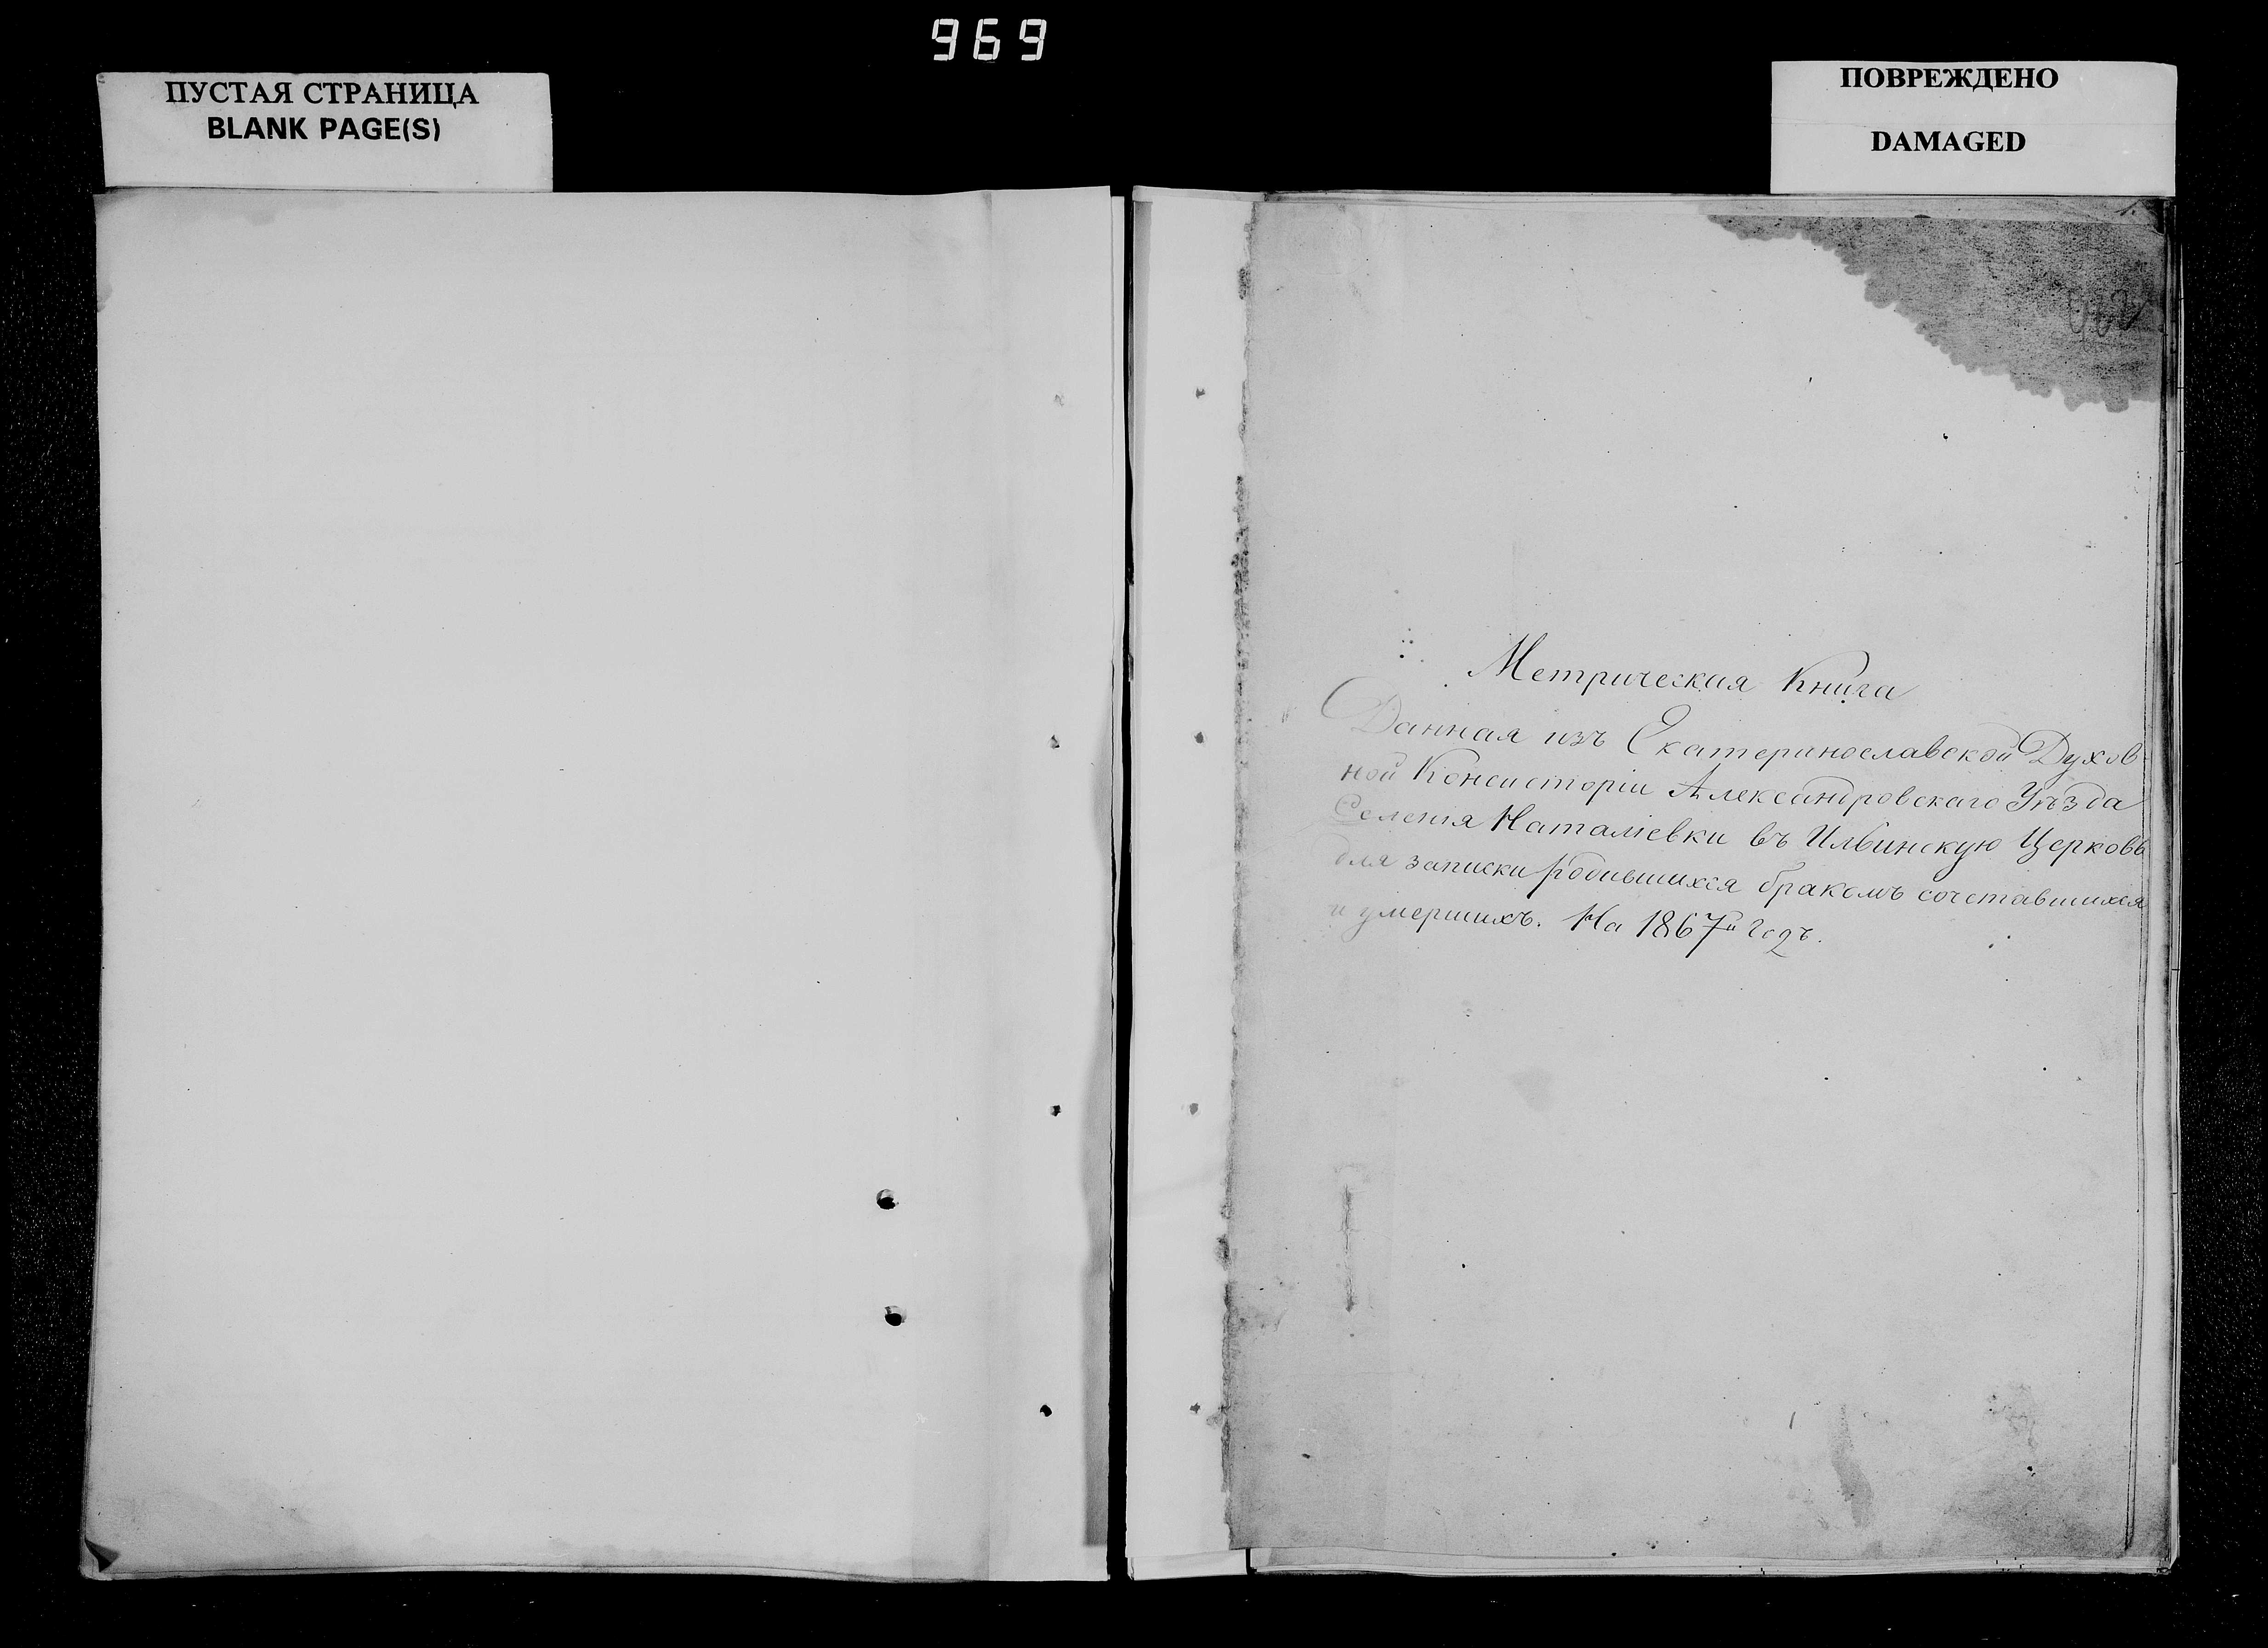 969
ПУСТАЯ СТРАНИЦА
BLANK PAGE(S)
ПОВРЕЖДЕНО
DAMAGED
Метрическая Книга
Данная изъ Екатеринославской Духов-
ной Консисторіи Александровскаго Уѣзда
Селенія Наталіевки въ Ильинскую Церковь
для записки родившихся бракомъ сочетавшихся
и умершихъ. На 1867й годъ.